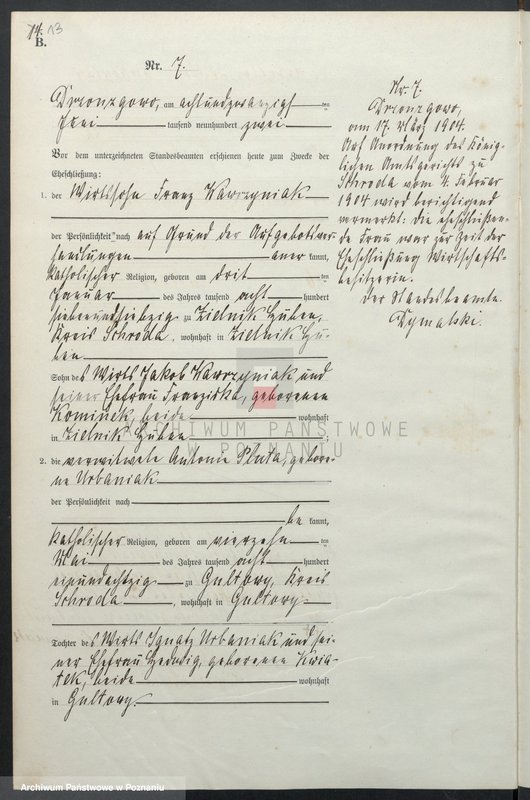 14. 13
B.
Nr. 7.
Drzonzgowo, am achtundzwanzigsten
Juni tausend neunhundert zwei
Vor dem unterzeichneten Standesbeamten erschienen heute zum Zwecke der
Eheschließung:
1. der Wirtssohn Franz Wawrzyniak
der Persönlichkeit nach auf Grund der Aufgebotsver-
handlungen anerkannt,
katholischer Religion, geboren am dritten
Januar des Jahres tausend acht hundert
siebenundsiebzig zu Zielnik Huben,
Kreis Schroda, wohnhaft in Zielnik Hu-
ben
Sohn des Wirts Jakob Wawrzyniak und
seiner Ehefrau Franziska, geborenen
Kominek, beide wohnhaft
in Zielnik Huben
2. die verwitwete Antonie Pluta, gebore-
ne Urbaniak
der Persönlichkeit nach
bekannt,
katholischer Religion, geboren am vierzehnten
Mai des Jahres tausend acht hundert
einundachtzig zu Gultowy, Kreis
Schroda, wohnhaft in Gultowy
Tochter des Wirts Ignatz Urbaniak und sei-
ner Ehefrau Hedwig, geborenen Kwia-
tek, beide wohnhaft
in Gultowy.
Nr. 7.
Drzonzgowo,
am 17. März 1904.
Auf Anordnung des König-
lichen Amtsgerichts zu
Schroda vom 4. Februar
1904 wird berichtigend
vermerkt: die eheschließen-
de Frau war zur Zeit der
Eheschließung Wirtschafts-
besitzerin.
Der Standesbeamte.
Dymalski.
ARCHIWUM PAŃSTWOWE
W POZNANIU
Archiwum Państwowe w Poznaniu